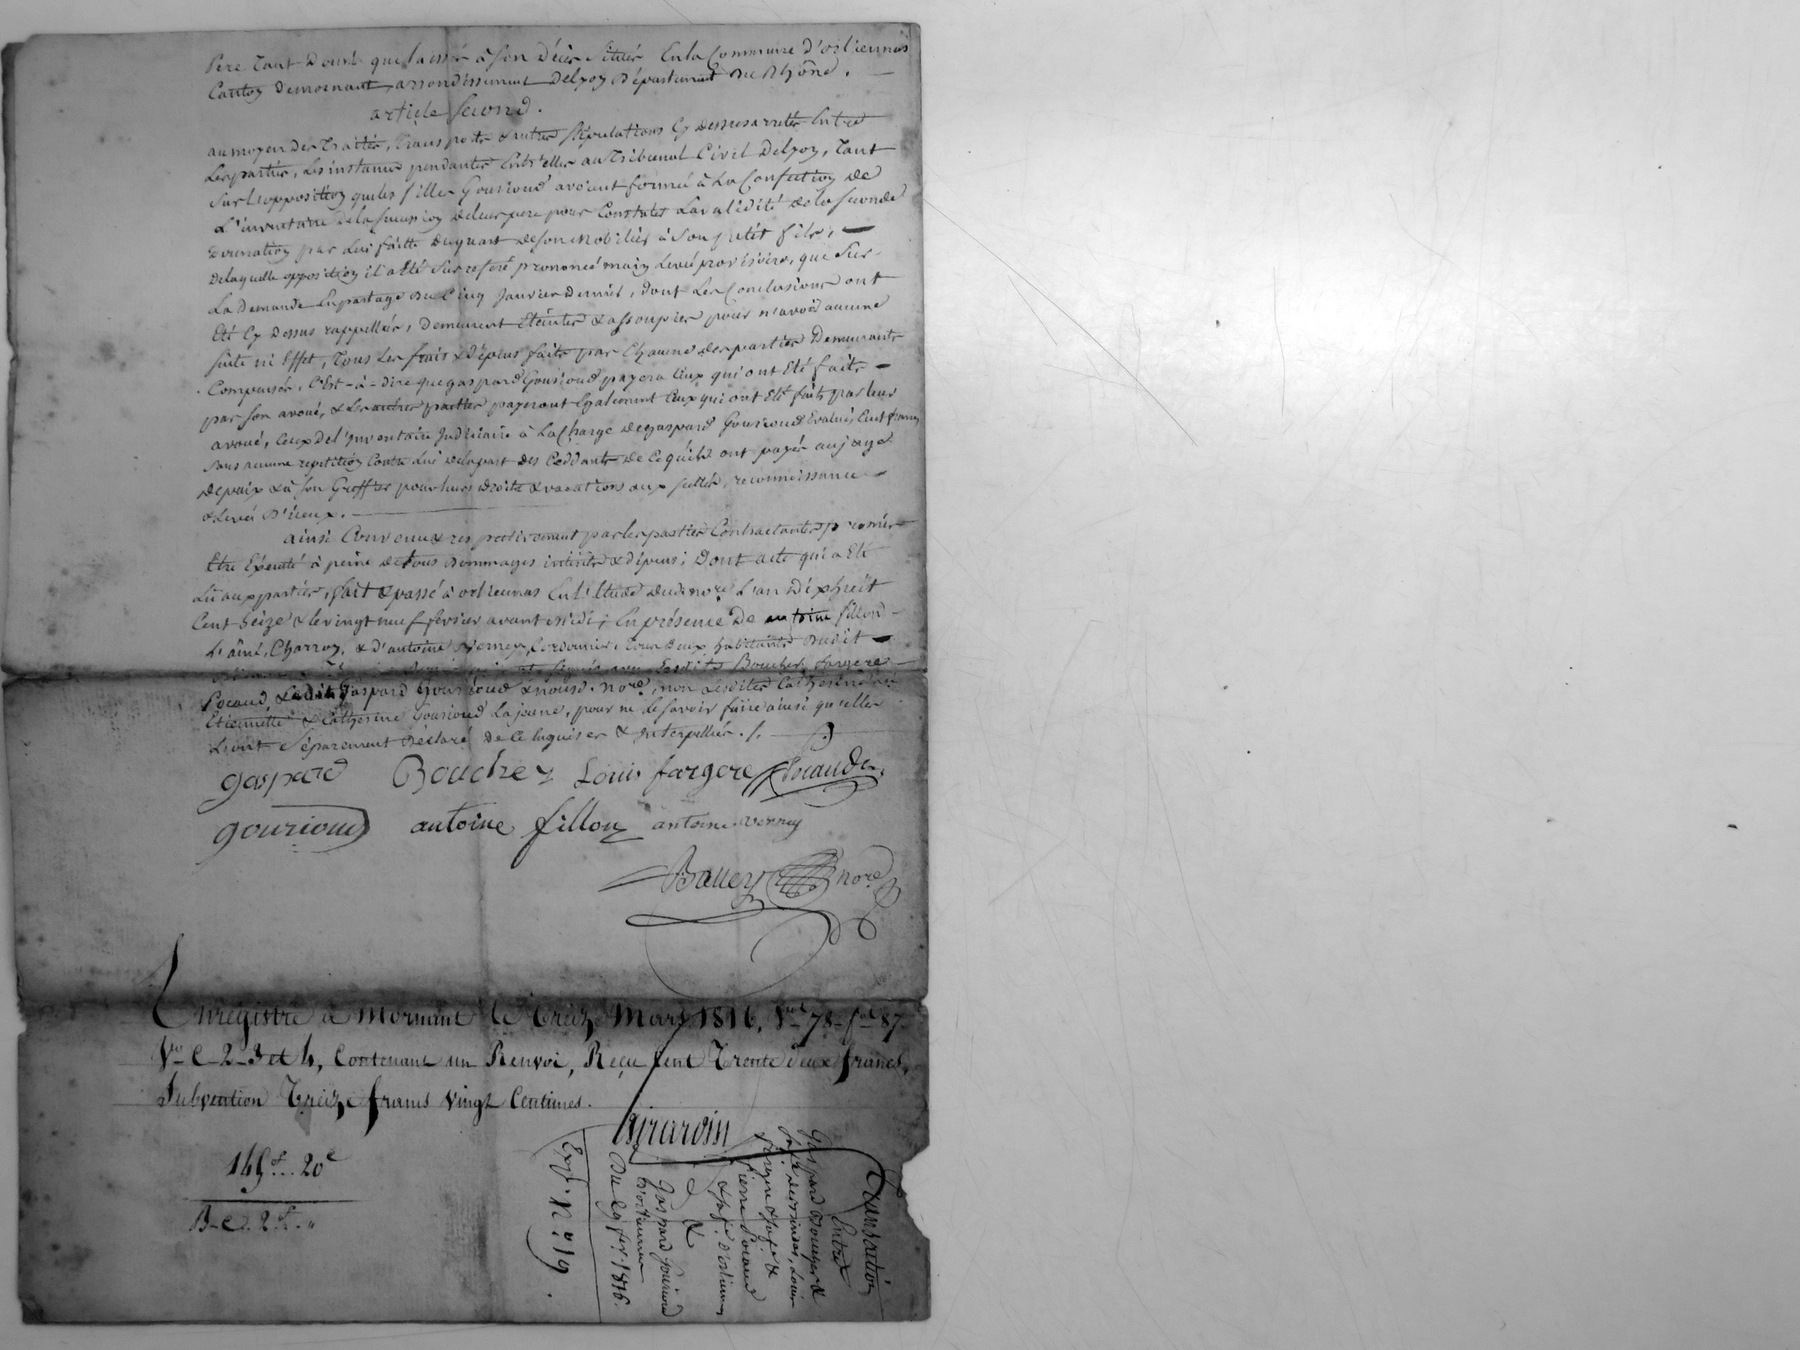 Pere tant Douné que laissés à son Décès situés En la Commune d'orliennas
Canton de mornant arrondissement de lyon Département du Rhône. —
article second.
au moyen des traités, transports & autres stipulations cy dessus arretés Entre
Les parties, Les instances pendantes Entr'elles au Tribunal Civil de lyon, Tant
sur L'opposition que les filles Gourioud avoient formée à La Confection de
L'inventaire de la succession de leur pere pour Constater La validité de la seconde
Donnation par Lui faitte du quart de son mobilier à son petit fils, —
de laquelle opposition il a été sur referé prononcé main Levée provisoire, que sur
La Demande En partage du Cinq Janvier Dernier, Dont Les Conclusions ont
Eté Cy Dessus rappellées, Demeurent Eteintes & assoupies pour n'avoir aucune
suite ni Effet, Tous Les frais & Dépens faits par Chacune des parties Demeurants
Compensés, C'est-à-dire que gaspard Gourioud payera Ceux qui ont Eté faits —
par son avoué, & Les autres parties payeront Egalement Ceux qui ont Eté faits par leur
avoué, Ceux de l'inventaire Judiciaire à La Charge de gaspard Gourioud Evalués Cent francs
sans aucune repetition Contre Lui de la part des Ceddants de Ce qu'ils ont payés au juge
de paix & à son Greffier pour leurs droits & vacations aux scellés, reconnoissance —
& Levée D'iceux. —
ainsi Convenu & respectivement par les parties Contractantes promis
Etre Exécuté à peine de tous Dommages interets & dépens; Dont acte qui a Eté
Lu aux parties, fait & passé à orliennas En l'Etude dudit nore L'an Dixhuit
Cent seize & le vingt neuf fevrier avant midi, En présence de antoine fillon —
L'ainé, Charron, & d'antoine Verney, Cordonnier, tous Deux habitants Dudit —
signés avec Lesdits Boucher, fargere —
Pocaud, & Ledit Gaspard Gourioud & nousd. nore, non Lesdites Catherine
Etiennette & Catherine Gourioud La jeune, pour ne le savoir faire ainsi qu'elles
L'ont séparement Déclaré de Ce Enquises & interpellées ./.
gaspard Boucher Louis fargere Pocaud
gourioud antoine fillon antoine verney
Balley nore
Enregistré à Mornant le treize Mars 1816, Vol 78 fol 87
Vo C. 2 - 3 et 4, Contenant un Renvoi, Reçu Cent Trente deux francs,
Subvention Treize francs Vingt Centimes.
Girardin
145f.. 20c
B-C. 2f.. "
Transaction
Entre
Gaspard Boucher &
Louis
fargere & sa fe &
Pierre Pocaud
& sa fe. d'orliennas
&
Gaspard Gourioud
d'orliennas
Du 29 fer. 1816.
Exp. No 19.